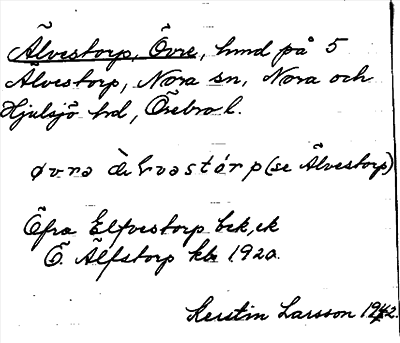 Älvestorp, Övre, hmd på 5
Älvestorp, Nora sn, Nora och
Hjulsjö hd, Örebro l.
øvrə (se Älvestorp)
Öfra Elfvestorp bek, ek
Ö. Älfstorp kbr 1920.
Kerstin Larsson 1942.